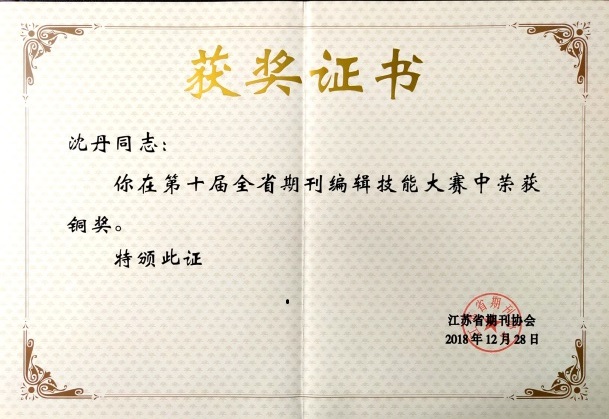 获奖证书
沈丹同志：
你在第十届全省期刊编辑技能大赛中荣获
铜奖。
特颁此证
江苏省期刊协会
2018年12月28日